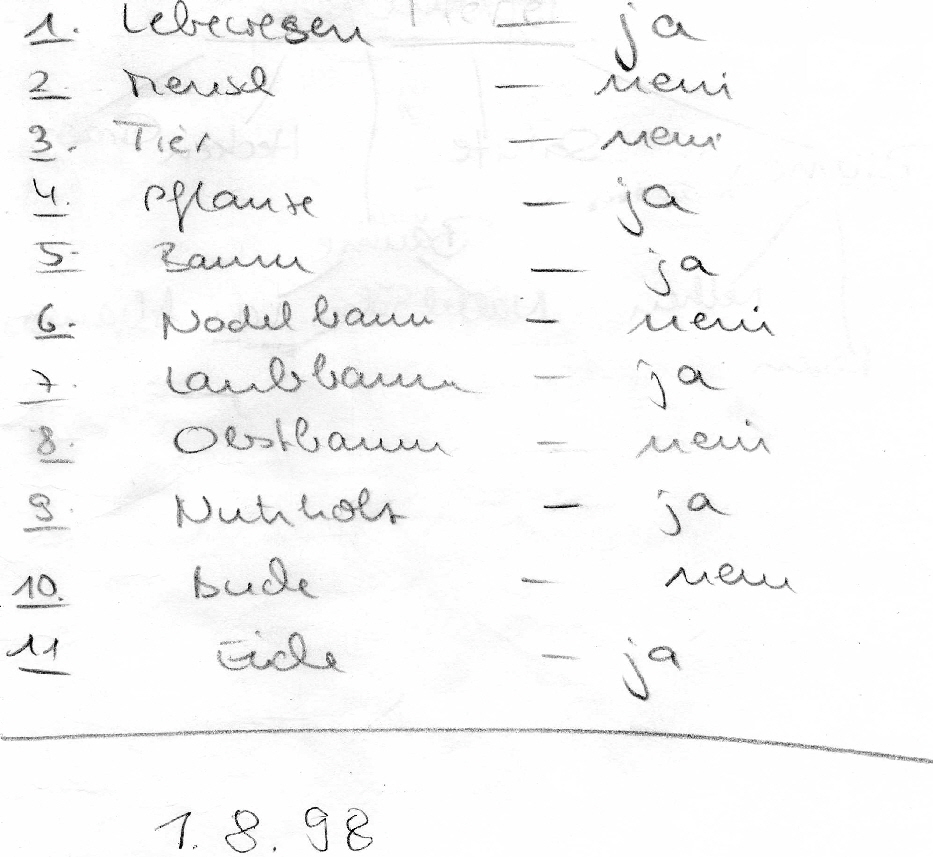 1. Lebewesen – ja
2. Mensch – nein
3. Tier – nein
4. Pflanze – ja
5. Baum – ja
6. Nadelbaum – nein
7. Laubbaum – ja
8. Obstbaum – nein
9. Nutzholz – ja
10. Buche – nein
11 Eiche – ja
1.8.98